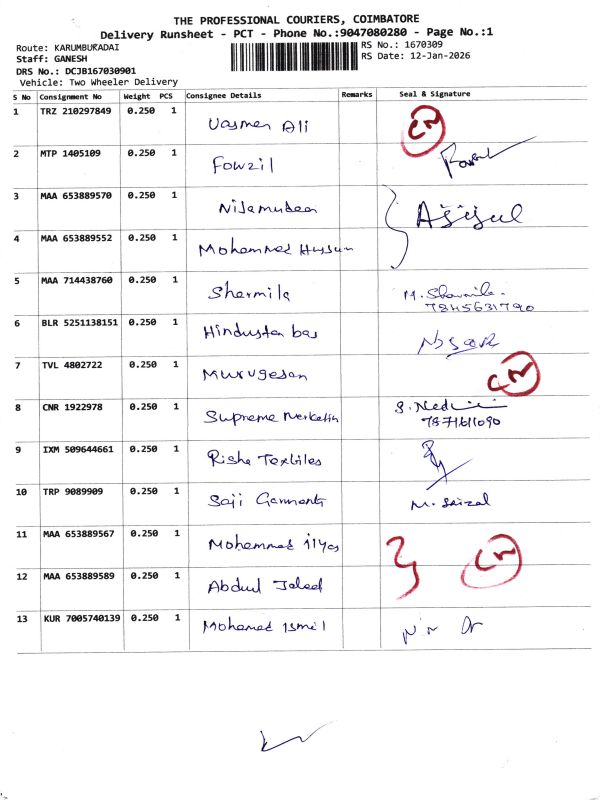 THE PROFESSIONAL COURIERS, COIMBATORE
Delivery Runsheet - PCT - Phone No.:9047080280 - Page No.:1
Route: KARUMBUKADAI
RS No.: 1670309
Staff: GANESH
RS Date: 12-Jan-2026
DRS No.: DCJB167030901
Vehicle: Two Wheeler Delivery
S No Consignment No Weight PCS Consignee Details Remarks Seal & Signature
1 TRZ 210297849 0.250 1 Uasmen Ali
2 MTP 1405109 0.250 1 Fowzil
3 MAA 653889570 0.250 1 Nijamudeen
4 MAA 653889552 0.250 1 Mohammed Hussun
5 MAA 714438760 0.250 1 Sharmila M. Sharmila
7845631790
6 BLR 5251138151 0.250 1 Hindustan bag
7 TVL 4802722 0.250 1 Murugesan
8 CNR 1922978 0.250 1 Supreme Merketin
7871611090
9 IXM 509644661 0.250 1 Risha Textiles
10 TRP 9089909 0.250 1 Saji Garments M. Saizal
11 MAA 653889567 0.250 1 Mohammed ilyas
12 MAA 653889589 0.250 1 Abdul Jaleel
13 KUR 7005740139 0.250 1 Mohamed Ismil